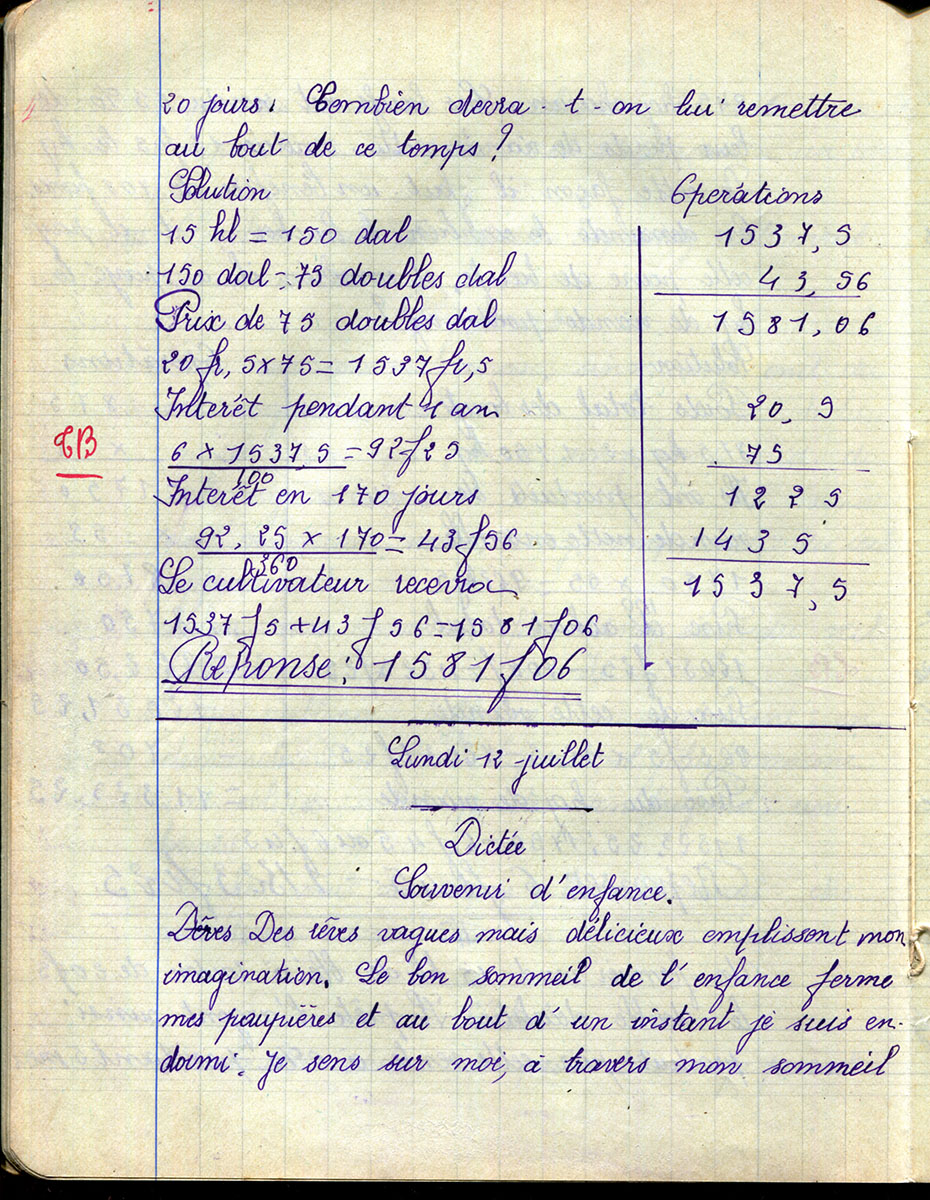 20 jours. Combien devra-t-on lui remettre
au bout de ce temps?
Solution
Opérations
15 hl = 150 dal
150 dal = 75 doubles dal
Prix de 75 doubles dal
20 fr, 5 x 75 = 1537 fr, 5
Interêt pendant 1 an
6 x 1537,5 = 92 f 25
100
Interêt en 170 jours
92,25 x 170 = 43 f 56
360
Le cultivateur recevra
1537 f 5 + 43 f 56 = 1581 f 06
Réponse: 1581 f 06
1537,5
43,56
1581,06
20,5
75
1225
1435
1537,5
TB
Lundi 12 juillet
Dictée
Souvenir d'enfance.
Des rêves vagues mais délicieux emplissent mon
imagination. Le bon sommeil de l'enfance ferme
mes paupières et au bout d'un instant je suis en-
dormi. Je sens sur moi, à travers mon sommeil